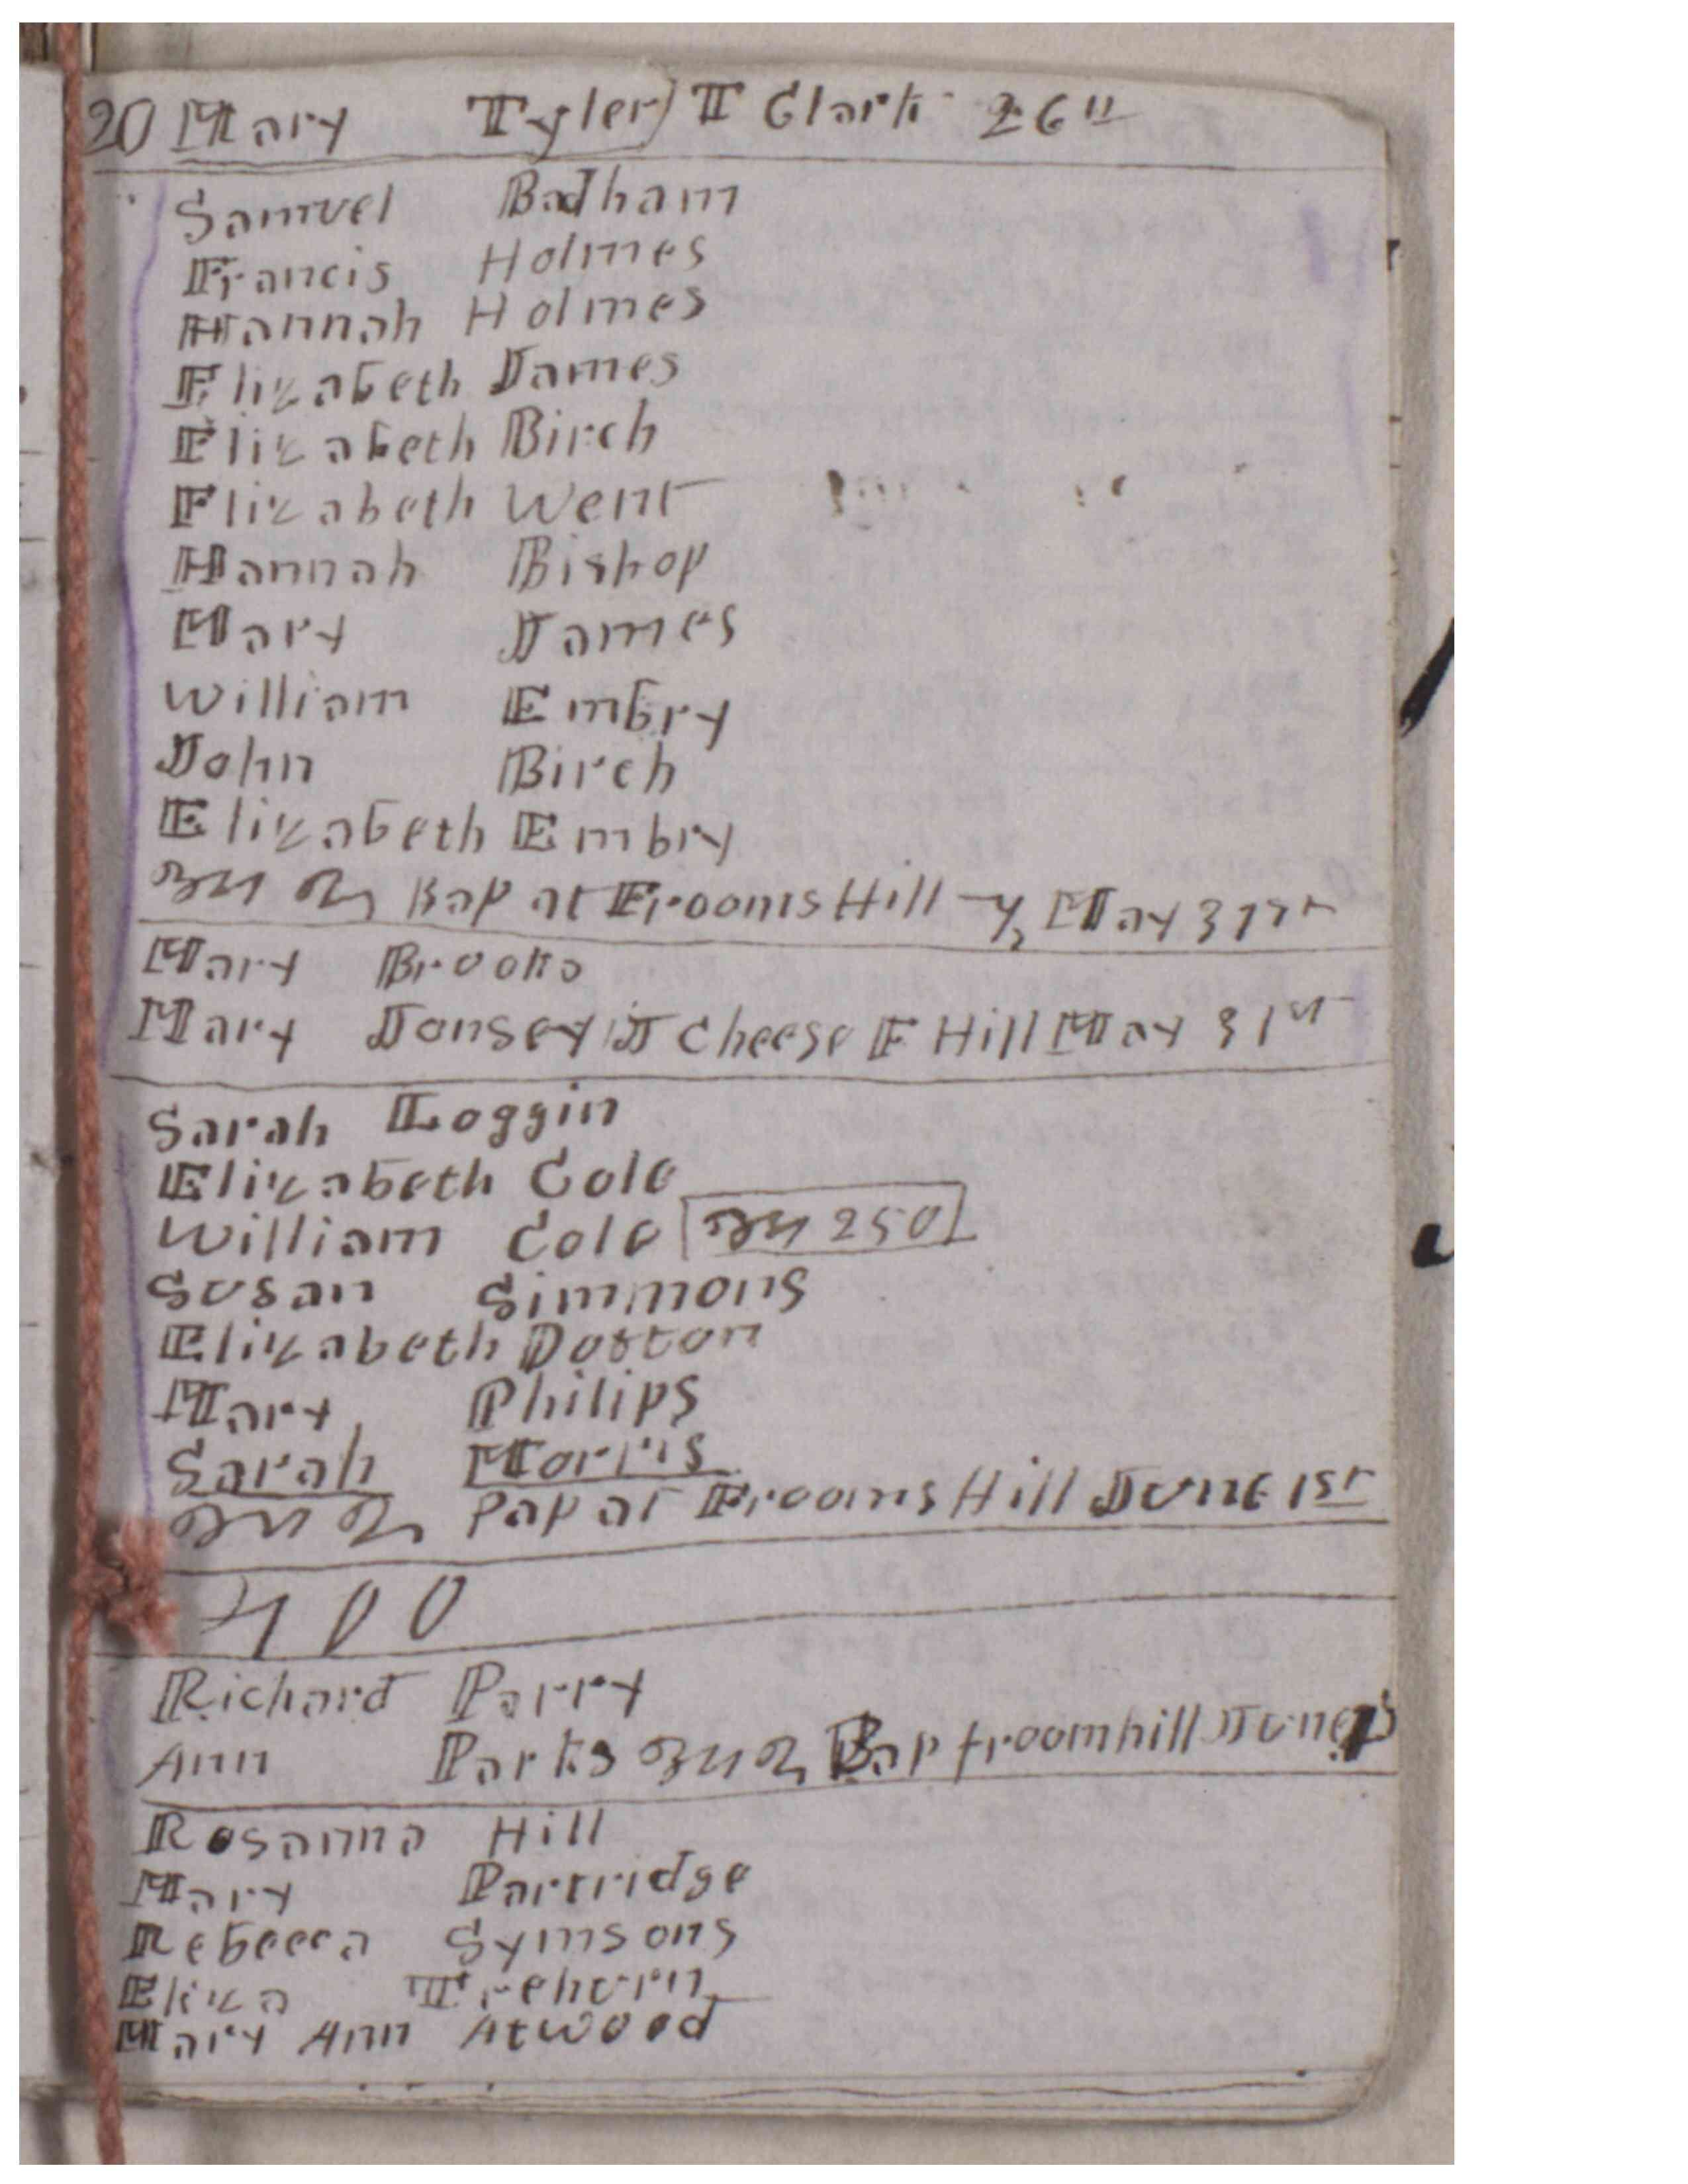 20 Mary Tyler) T Clark 26th
Samuel Badham
Francis Holmes
Hannah Holmes
Elizabeth James
Elizabeth Birch
Elizabeth Went
Hannah Bishop
Mary James
William Embry
John Birch
Elizabeth Embry
Bap at Frooms Hill May 31st
Mary Brooks
Mary Jonsey J Cheese F Hill May 31st
Sarah Loggin
Elizabeth Cole
William Cole 250
Susan Simmons
Elizabeth
Mary Philips
Sarah Morris
Bap at Frooms Hill June 1st
400
Richard Parry
Ann Parks Bap froomhill June
Rosanna Hill
Mary Partridge
Rebecca Symsons
Eliza Trehorn
Mary Ann Atwood